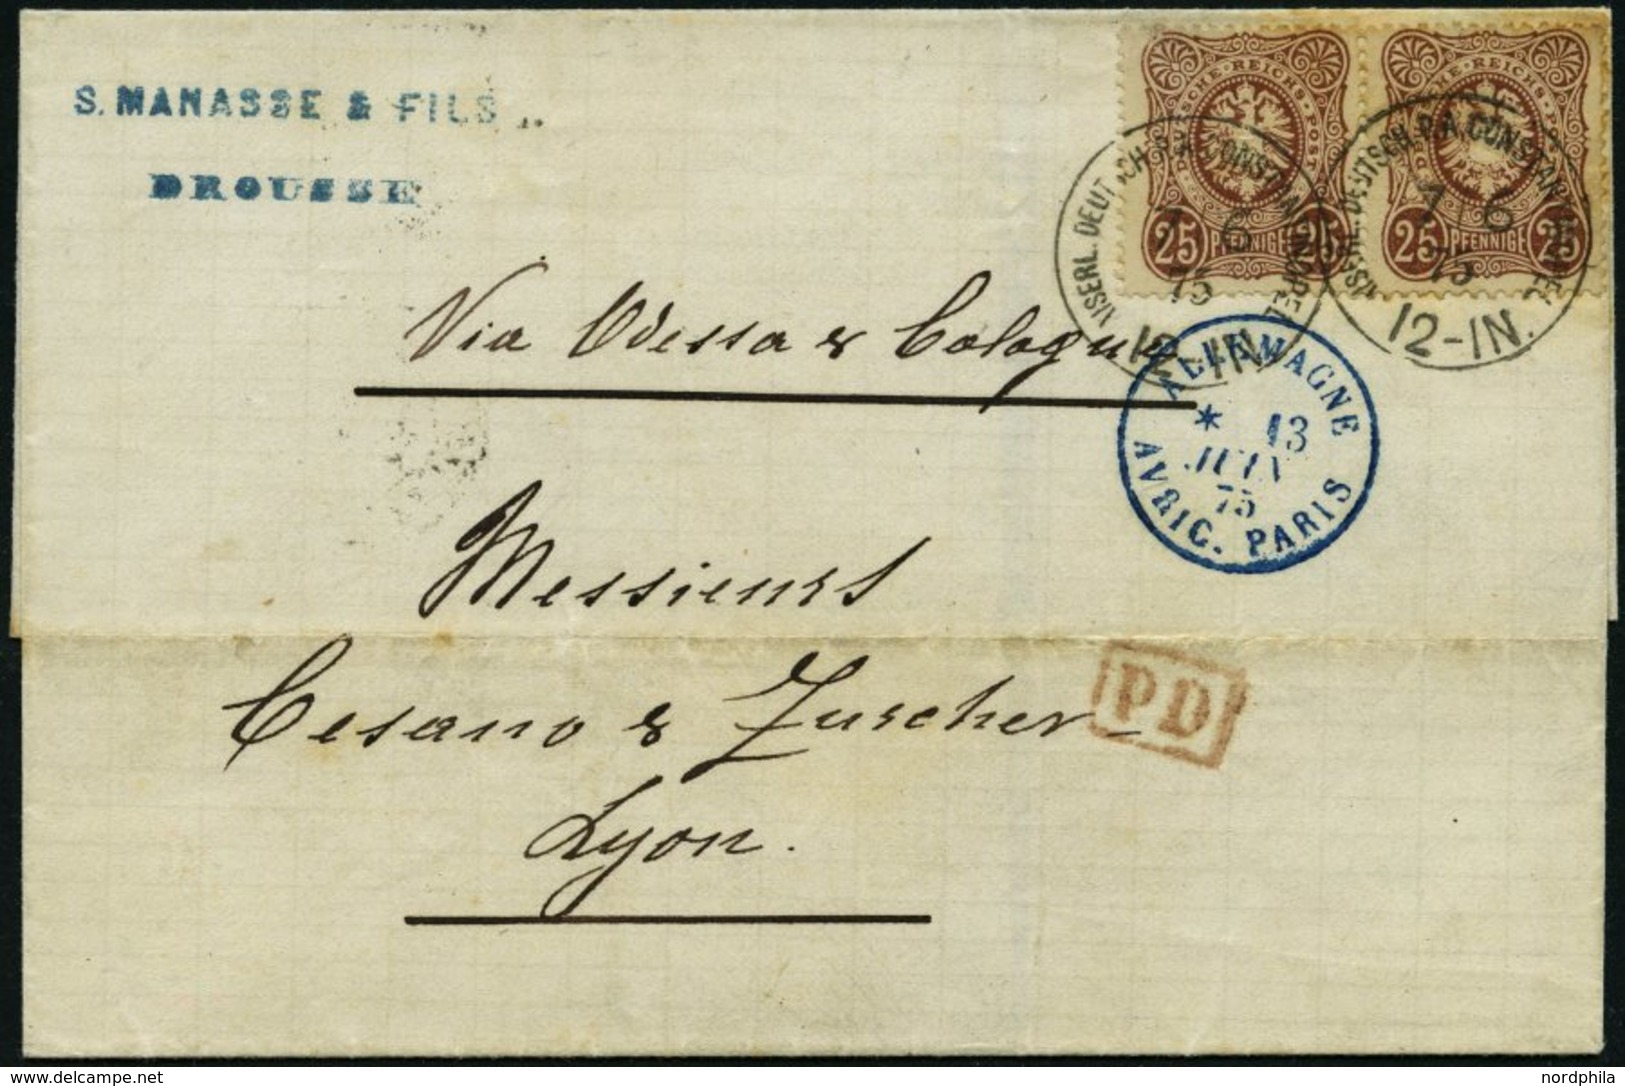 S. MANASSE & FILS
BROUSSE
DEUTSCHE REICHS-POST
25 PFENNIGE 25
DEUTSCHE REICHS-POST
25 PFENNIGE 25
KAISERL. DEUTSCH. P.A. CONSTANTINOPEL
1 6
75
12-1N.
KAISERL. DEUTSCH. P.A. CONSTANTINOPEL
1 6
75
12-1N.
Via Odessa & Cologne
ALLEMAGNE
* 13
JUIN
75
AVRIC. PARIS
Messieurs
Cesano & Zuscher
PD
Lyon.
delcampe.net
nordphila